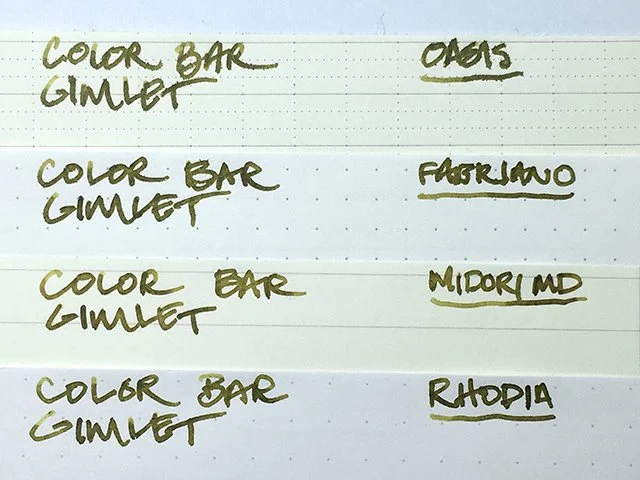 COLOR BAR OASIS
GIMLET
COLOR BAR FABRIANO
GIMLET
COLOR BAR MIDORI MD
GIMLET
COLOR BAR RHODIA
GIMLET